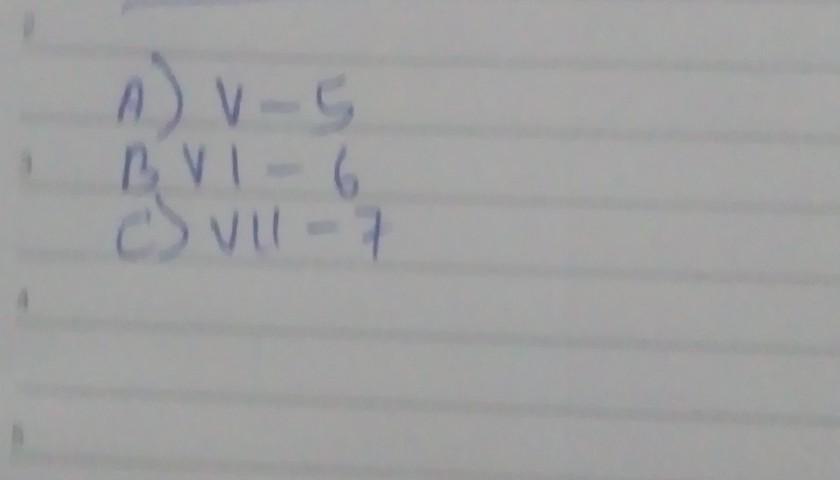 A) V - 5
B) VI - 6
C) VII - 7